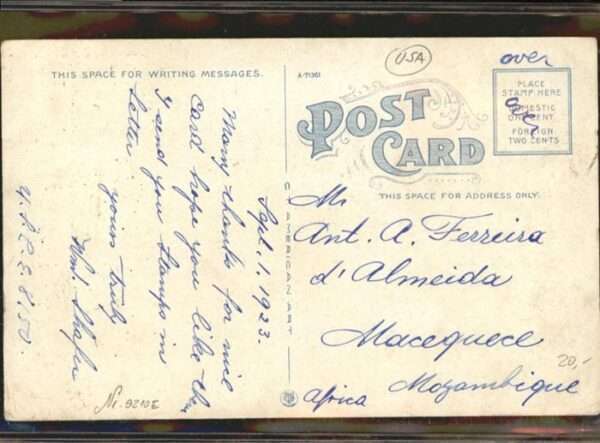 THIS SPACE FOR WRITING MESSAGES.
Sept. 1. 1923.
Many thanks for nice
Card hope you like them
I send you Stamps in
letter.
yours truly
Wm. Shafer
A-71361
USA
over
PLACE
STAMP HERE
DOMESTIC
ONE CENT
FOREIGN
TWO CENTS
over
POST
CARD
THIS SPACE FOR ADDRESS ONLY.
C. AMERICAN ART
Mr
Ant. A. Ferreira
d'Almeida
Macequece
Africa Mozambique
20,-